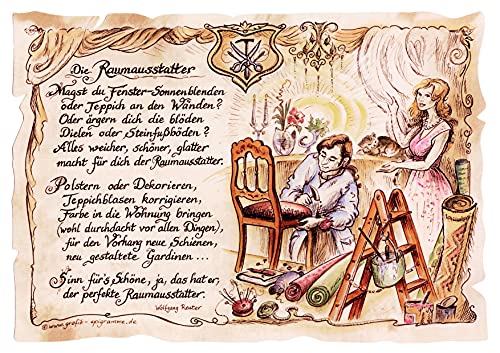 Die Raumausstatter
Magst du Fenster-Sonnenblenden
oder Teppich an den Wänden?
Oder ärgern dich die blöden
Dielen oder Steinfußböden?
Alles weicher, schöner, glatter
macht für dich der Raumausstatter.
Polstern oder Dekorieren,
Teppichblasen korrigieren,
Farbe in die Wohnung bringen
(wohl durchdacht vor allen Dingen),
für den Vorhang neue Schienen,
neu gestaltete Gardinen...
Sinn für's Schöne, ja, das hat er,
der perfekte Raumausstatter.
Wolfgang Reuter
©www.grafik-epigramme.de